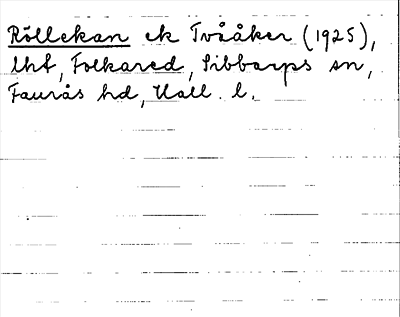 Röllekan ek Tvååker (1925),
lht, Folkared, Sibbarps sn,
Faurås hd, Hall. l.